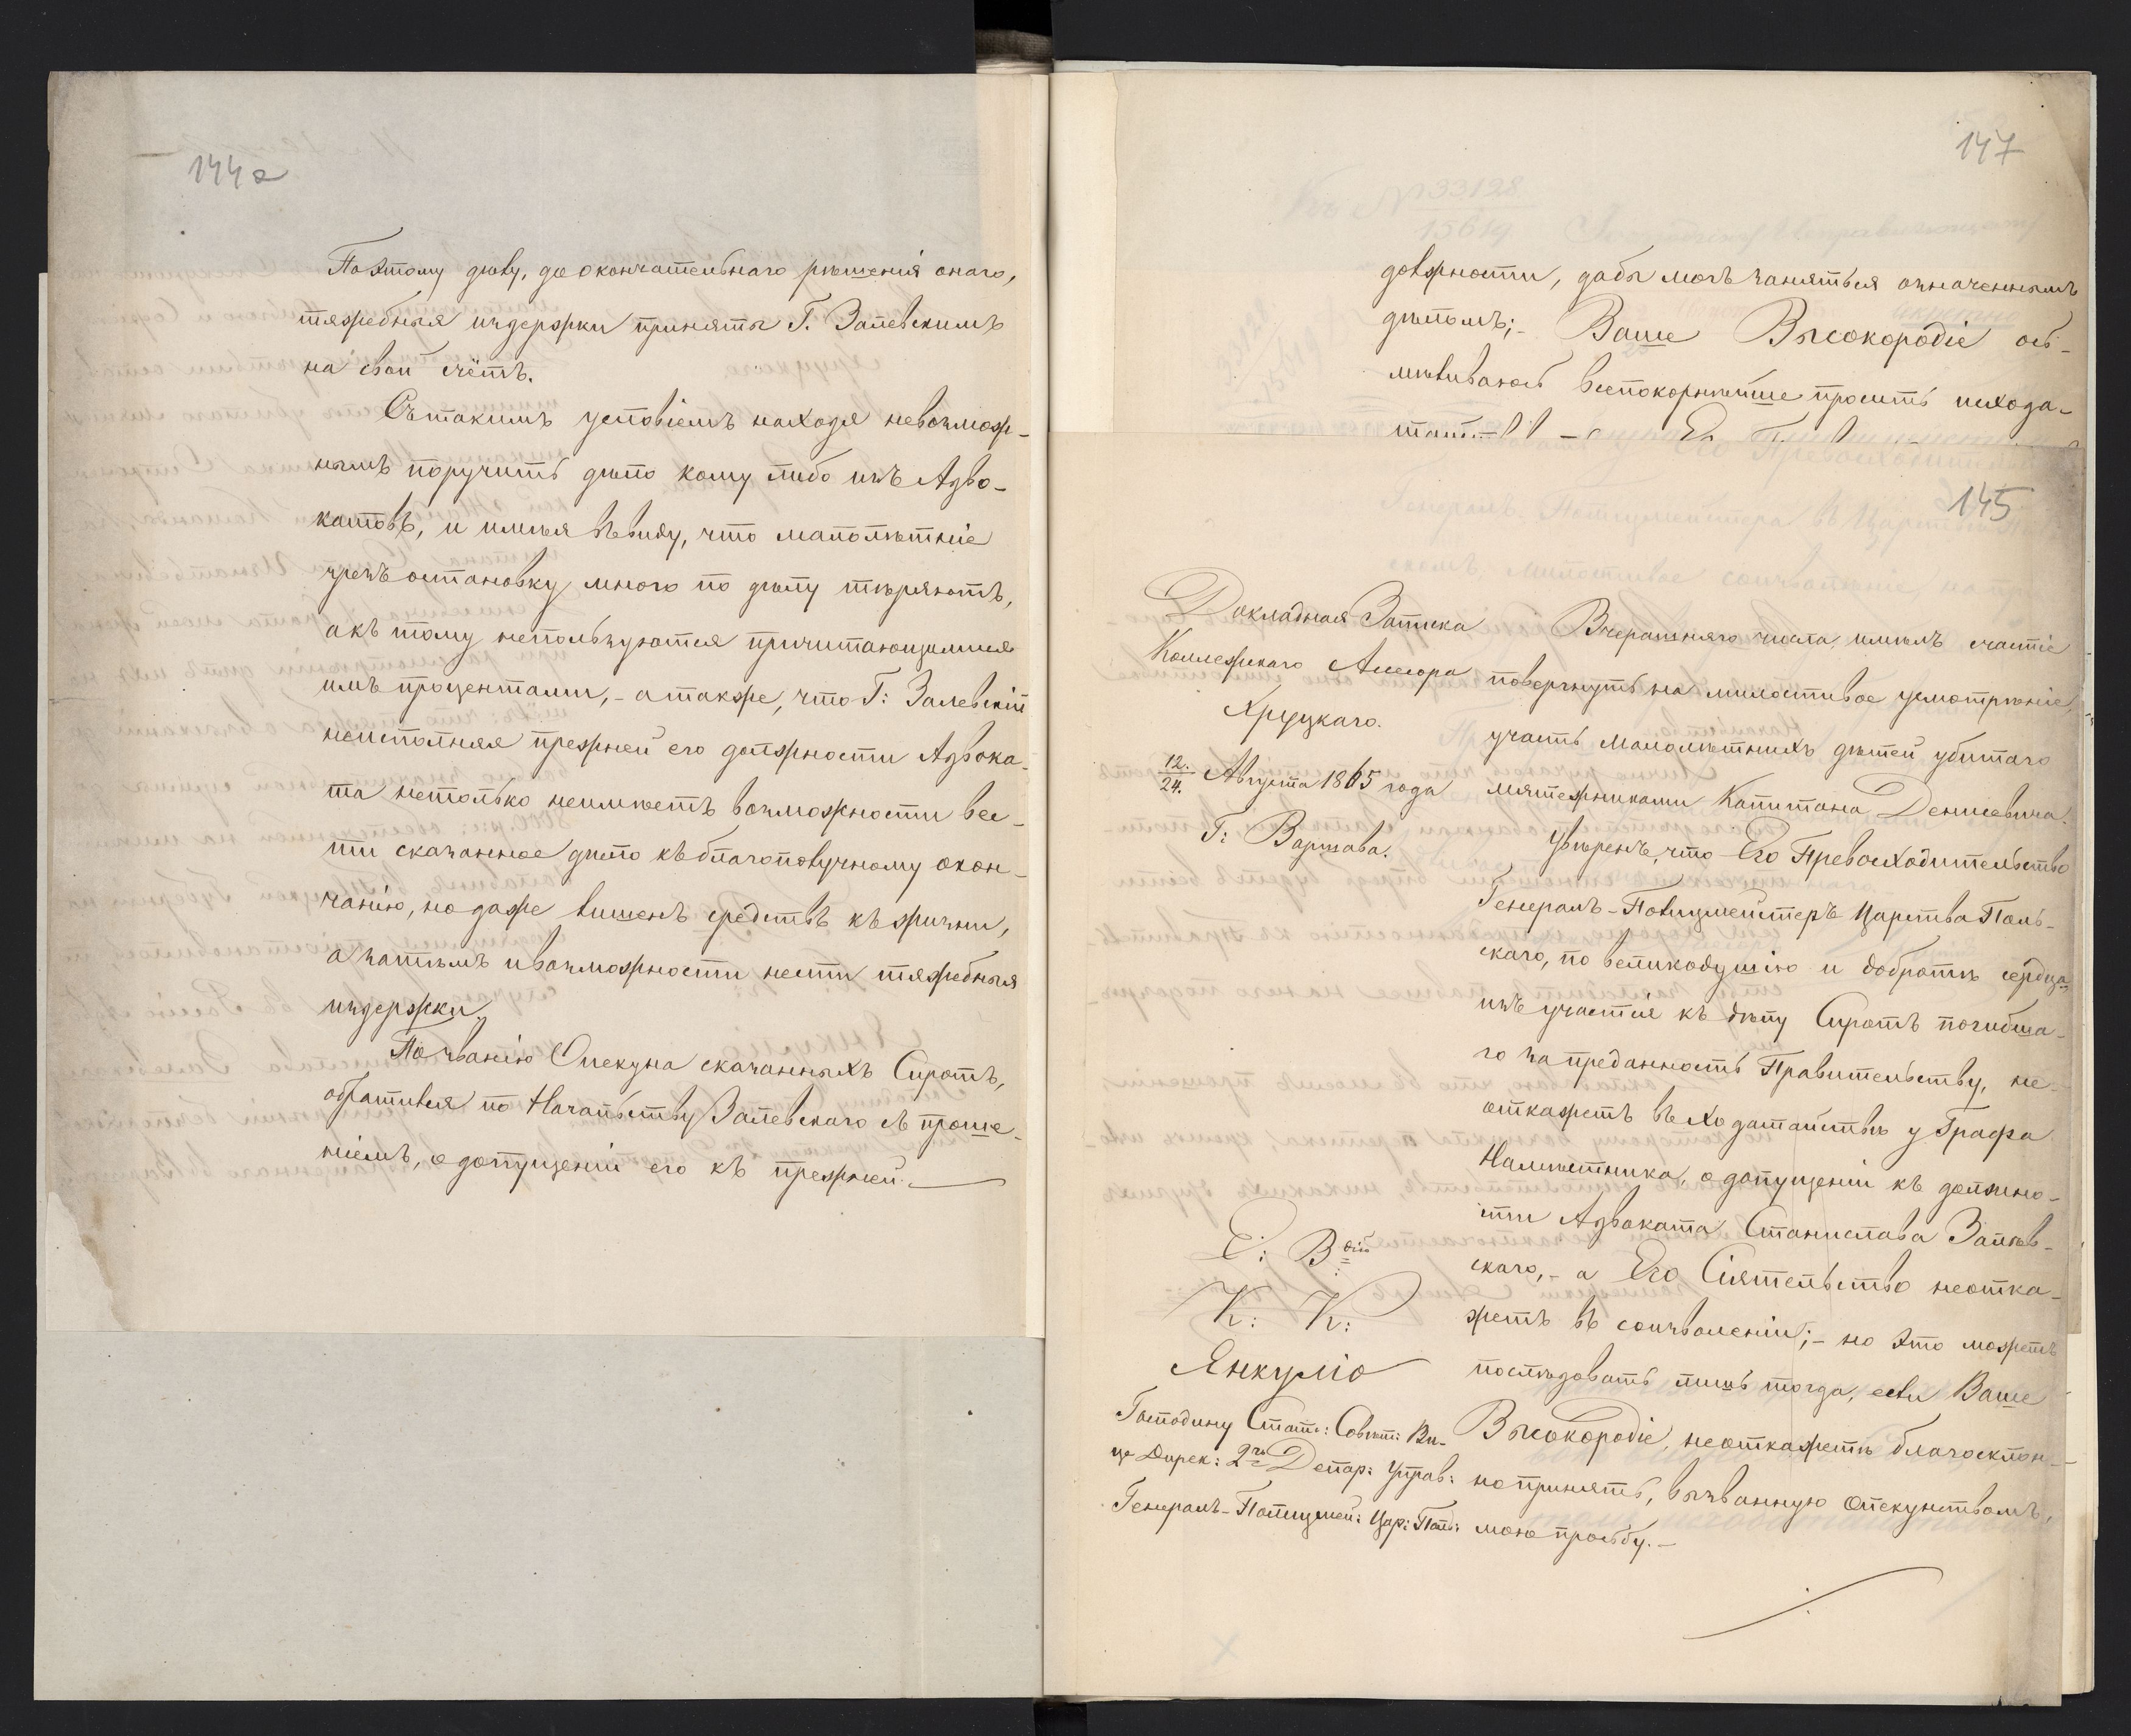 144a
По этому делу, до окончательнаго решенія онаго,
тяжебныя издержки приняты Г. Залевскимъ
на свой счётъ.
Съ такимъ условіемъ находя невозмож-
нымъ поручить дѣло кому либо изъ Адво-
катовъ, и имѣя въ виду, что малолѣтніе
чрезъ остановку, много по дѣлу тѣряютъ,
а къ тому непользуются причитающимися
имъ процентами, - а также, что Г: Залевскій
неисполняя прежней его должности Адвока-
та нетолько неимѣетъ возможности вес-
ти сказанное дѣло къ благополучному окон-
чанію, но даже лишенъ средствъ къ жизни,
а затѣмъ и возможности нести тяжебныя
издержки.
По званію Опекуна сказанныхъ Сиротъ,
обратился по Начальству Залевскаго съ проше-
ніемъ, о допущеніи его къ прежней. —
147
должности, дабы могъ заняться означеннымъ
дѣломъ; - Ваше Высокородіе ос-
мѣливаюсь всепокорнѣйше просить исхода-
145
Докладная Записка
Коллежскаго Асесора
Хруцкаго.
12./24. Августа 1865 года
Г: Варшава.
Вчерашняго числа, имѣлъ счастіе
повергнуть на милостивое усмотрѣніе,
участь малолѣтнихъ дѣтей убитаго
мятежниками Капитана Денисевича.
Увѣренъ, что Его Превосходительство
Генералъ-Полицмейстеръ Царства Поль-
скаго, по великодушію и добротѣ сердца,
изъ участія къ дѣлу Сиротъ погибша-
го за преданность Правительству, не
откажетъ въ ходатайствѣ у Графа
Намѣстника, о допущеніи къ должно-
сти Адвоката Станислава Залѣв-
скаго, - а Его Сіятельство неотка-
жетъ въ соизволеніи; - но этоможетъ
послѣдовать лишь тогда, если Ваше
Высокородіе, неоткажетъ благосклон-
но принять, вызванную Опекунствомъ,
мою прозьбу. —
Е: В дію
К: К:
Янкуліо
Господину Статс: Совѣт: Ви-
це Дирек: 2го Депар: Управ:
Генералъ-Полицмей: Цар: Поль: